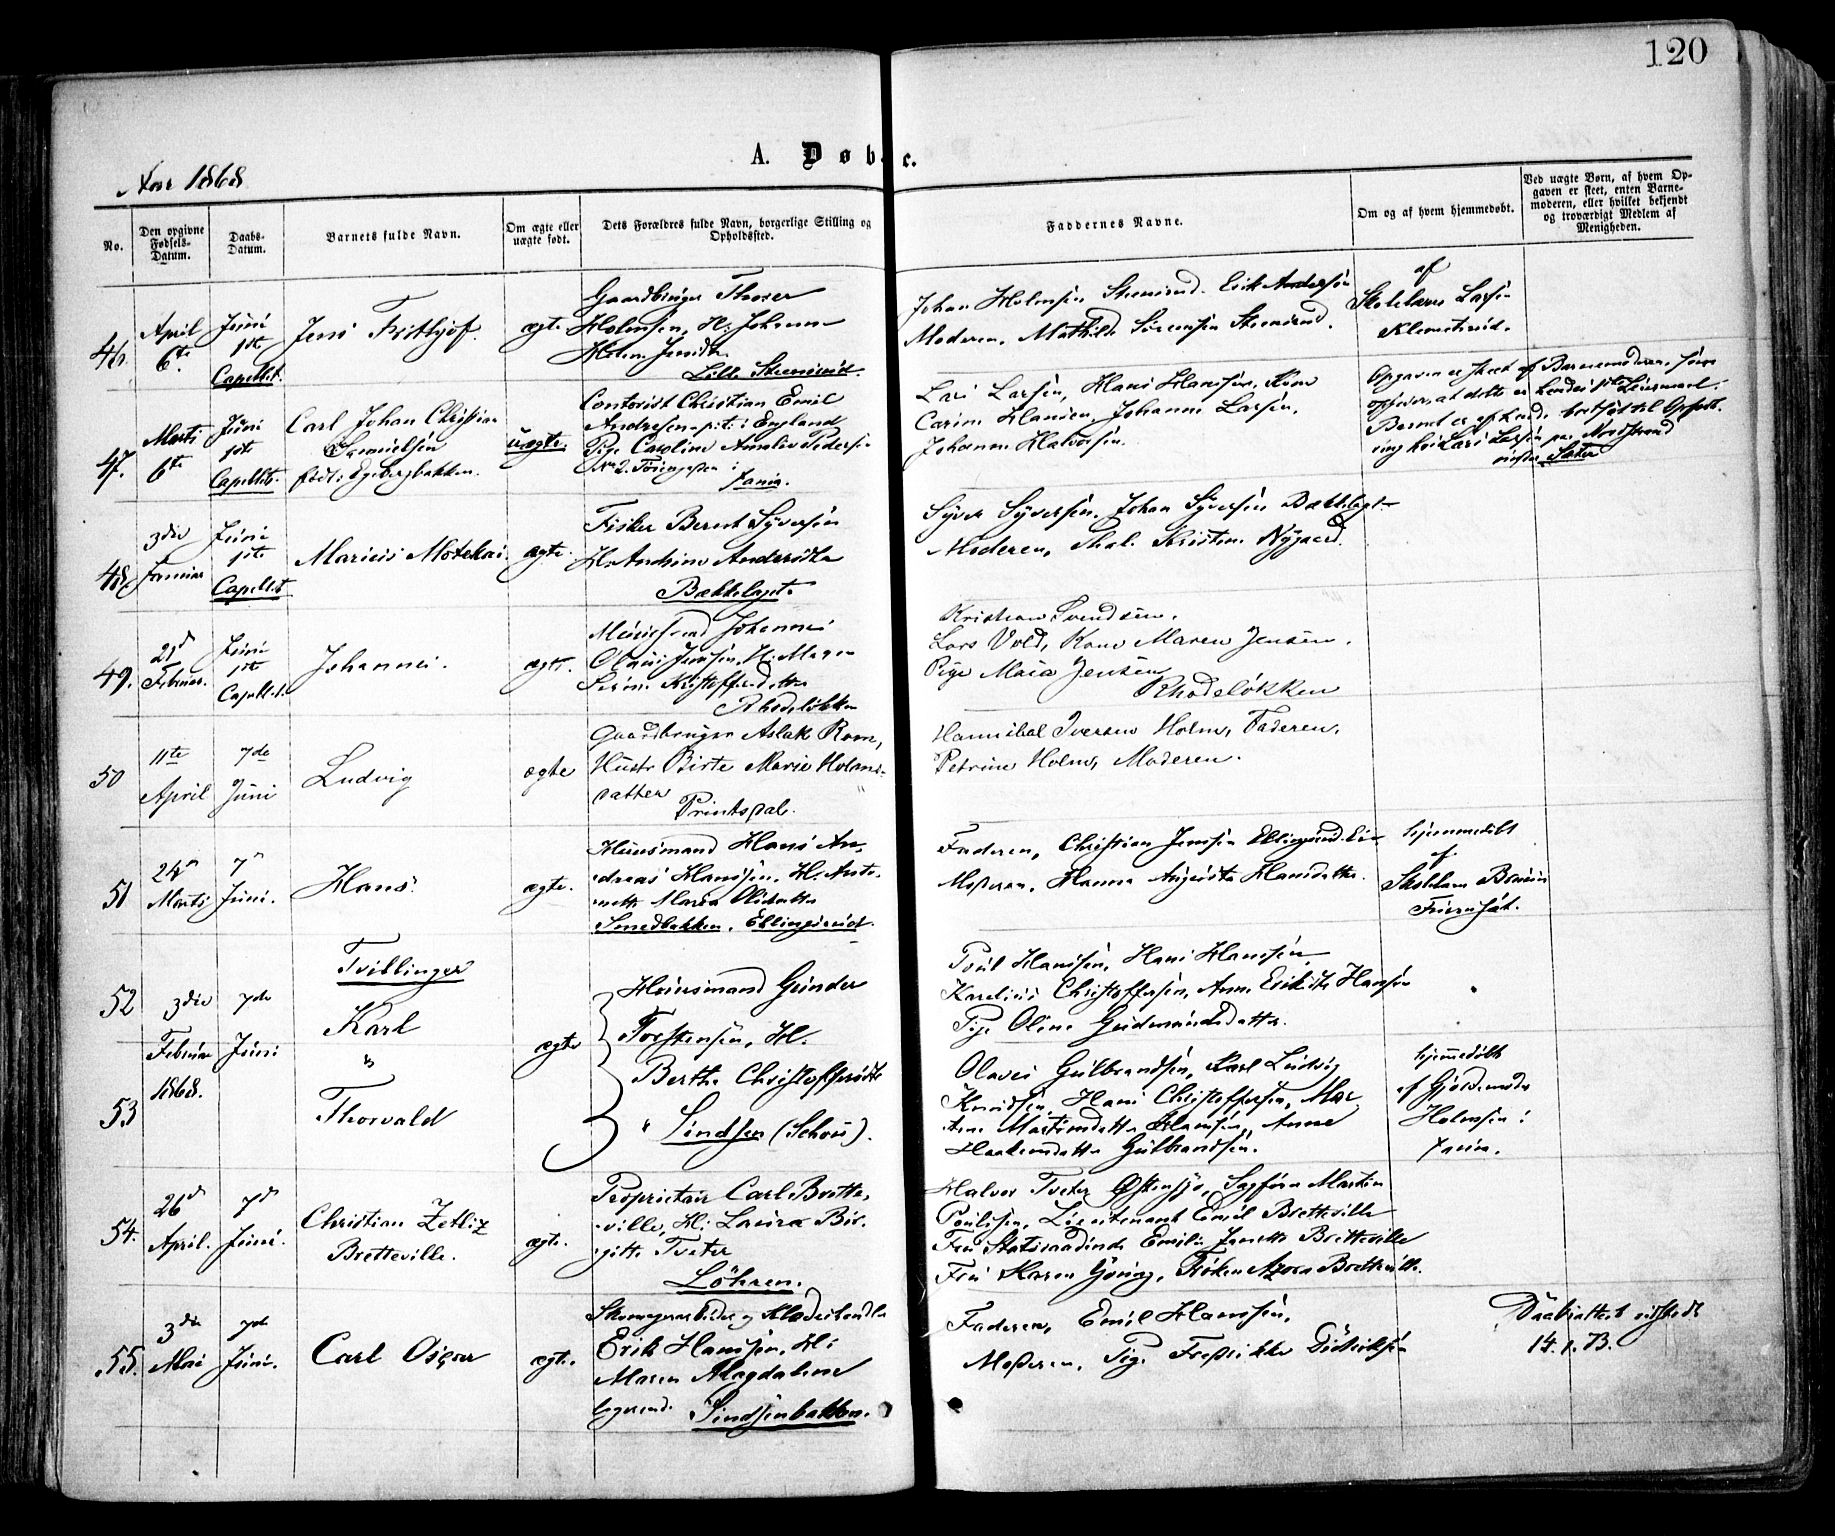 120
A. Døbte.
Aar 1868
No.
Den opgivne
Fødsels-
Datum.
Daabs-
Datum.
Barnets fulde Navn.
Om ægte eller
uægte født.
Dets Forældres fulde Navn, borgerlige Stilling og
Opholdssted.
Faddernes Navne.
Om og af hvem hjemmedøbt.
Ved uægte Børn, af hvem Op-
gaven er skeet, enten Barne-
moderen, eller hvilket bekjendt
og troværdigt Medlem af
Menigheden.
46.
April
6te
Juni
1ste
Capellet.
Jens Frithjof.
ægte
Gaardbruger Thorer
Holmsen, H: Johanne
Helene Jensdtr
Lille Stensrud.
Johan Holmsen Stensrud. Erik Andersen
Moderen, Mathilde Sørensen Stensrud.
af
Skolelærer Larsen
Klemetsrud.
47.
Marts
6te
Juni
1ste
Capellet.
Carl Johan Christian
Samuelsen
født: Egebergbakken.
uægte.
Contorist Christian Emil
Andresen p.t. i England
Pige Caroline Amalie Pedersen
No 2.
Lars Larsen, Hans Hansen, Kone
Carine Hansen, Johanne Larsen,
Johanne Halvorsen.
Opgaven er skeet af Barnemoderen, som
opgiver, at dette er hendes
Barnet er af hende bortsat til Opfostr-
ing hos Lars Larsen paa Nordstrand
Sæter
48.
3die
Januar
Juni
1ste
Capellet
Marius Motekai.
ægte.
Fisker Bernt Syversen
H: Andrine Andersdtr
Bækkelaget.
Syver Syversen, Johan Syversen Bækkelaget
Moderen, Thal. Kristine Nygaard.
49.
21d
Februar.
Juni
1ste
Capellet.
Johannes.
ægte.
Muursvend Johannes
Olaus Jensen, H: Maren
Sørine Kristoffersdatter
Rhodeløkken
Kristian Svendsen.
Lars Vold, Kone Maren Jensen.
Pige Maia Jensen
Rhodeløkken
50
11te
April
7de
Juni
Ludvig
ægte
Gaardbruger Aslak Rom,
Hustr Birte Marie Holms-
datter
Printsdal.
Hannibal Iversen Holm, Faderen,
Petrine Holm, Moderen.
51
24d
Marts
7d
Juni.
Hans.
ægte.
Huusmand Hans An-
dreas Hansen, H: Anto-
nette Maria Olsdatter
Smedbakken, Ellingsrud.
Faderen, Christian Jensen Ellingsrud. Ei-
Moderen, Hanna Augusta Hansdatter.
hjemmedøbt
af
Skolelærer
52
3die
Februar
1868.
7de
Juni
Tvillinger
Karl
"
53
Thorvald
ægte
Huusmand Gunder
Torstensen, H.
Berthe Christoffersdtr
" Sindsen (Schou).
Poul Hansen, Hans Hansen
Karelius Christoffersen, Anne Hansen
Pige Oline Gudmundsdatter.
Olaves Gulbrandsen, Karl Ludvig
Knudsen, Hans Christoffersen, Mar
Ane Martinsdatter Hansen, Anne
Haakensdatter Gulbrandsen.
hjemmedøbt
af Gjordemoder
Holmsen i
54.
26d
April.
7d
Juni.
Christian Zetliz
Bretteville.
ægte.
Proprietair Carl Brette-
ville, H: Laura Bir-
gitte Tveter
Löhren.
Halvor Tveter Østensjø, Sagfører Martin
Poulsen, Lieutenant Emil Bretteville
Fru Statsraadinde Emilie Janette Bretteville
Fru Karen Gøring, Frøken Azora Bretteville.
55.
3die
Mai
7de
Juni.
Carl Osgar
ægte.
Skomagerarbeider og Klædeshandler
Erik Hansen, H:
Maren Magdalene
Sindsenbakken.
Faderen, Emil Hansen,
Moderen, Pige Fredrikke Didriksen
Daabsattest udstedt
14.1.73.